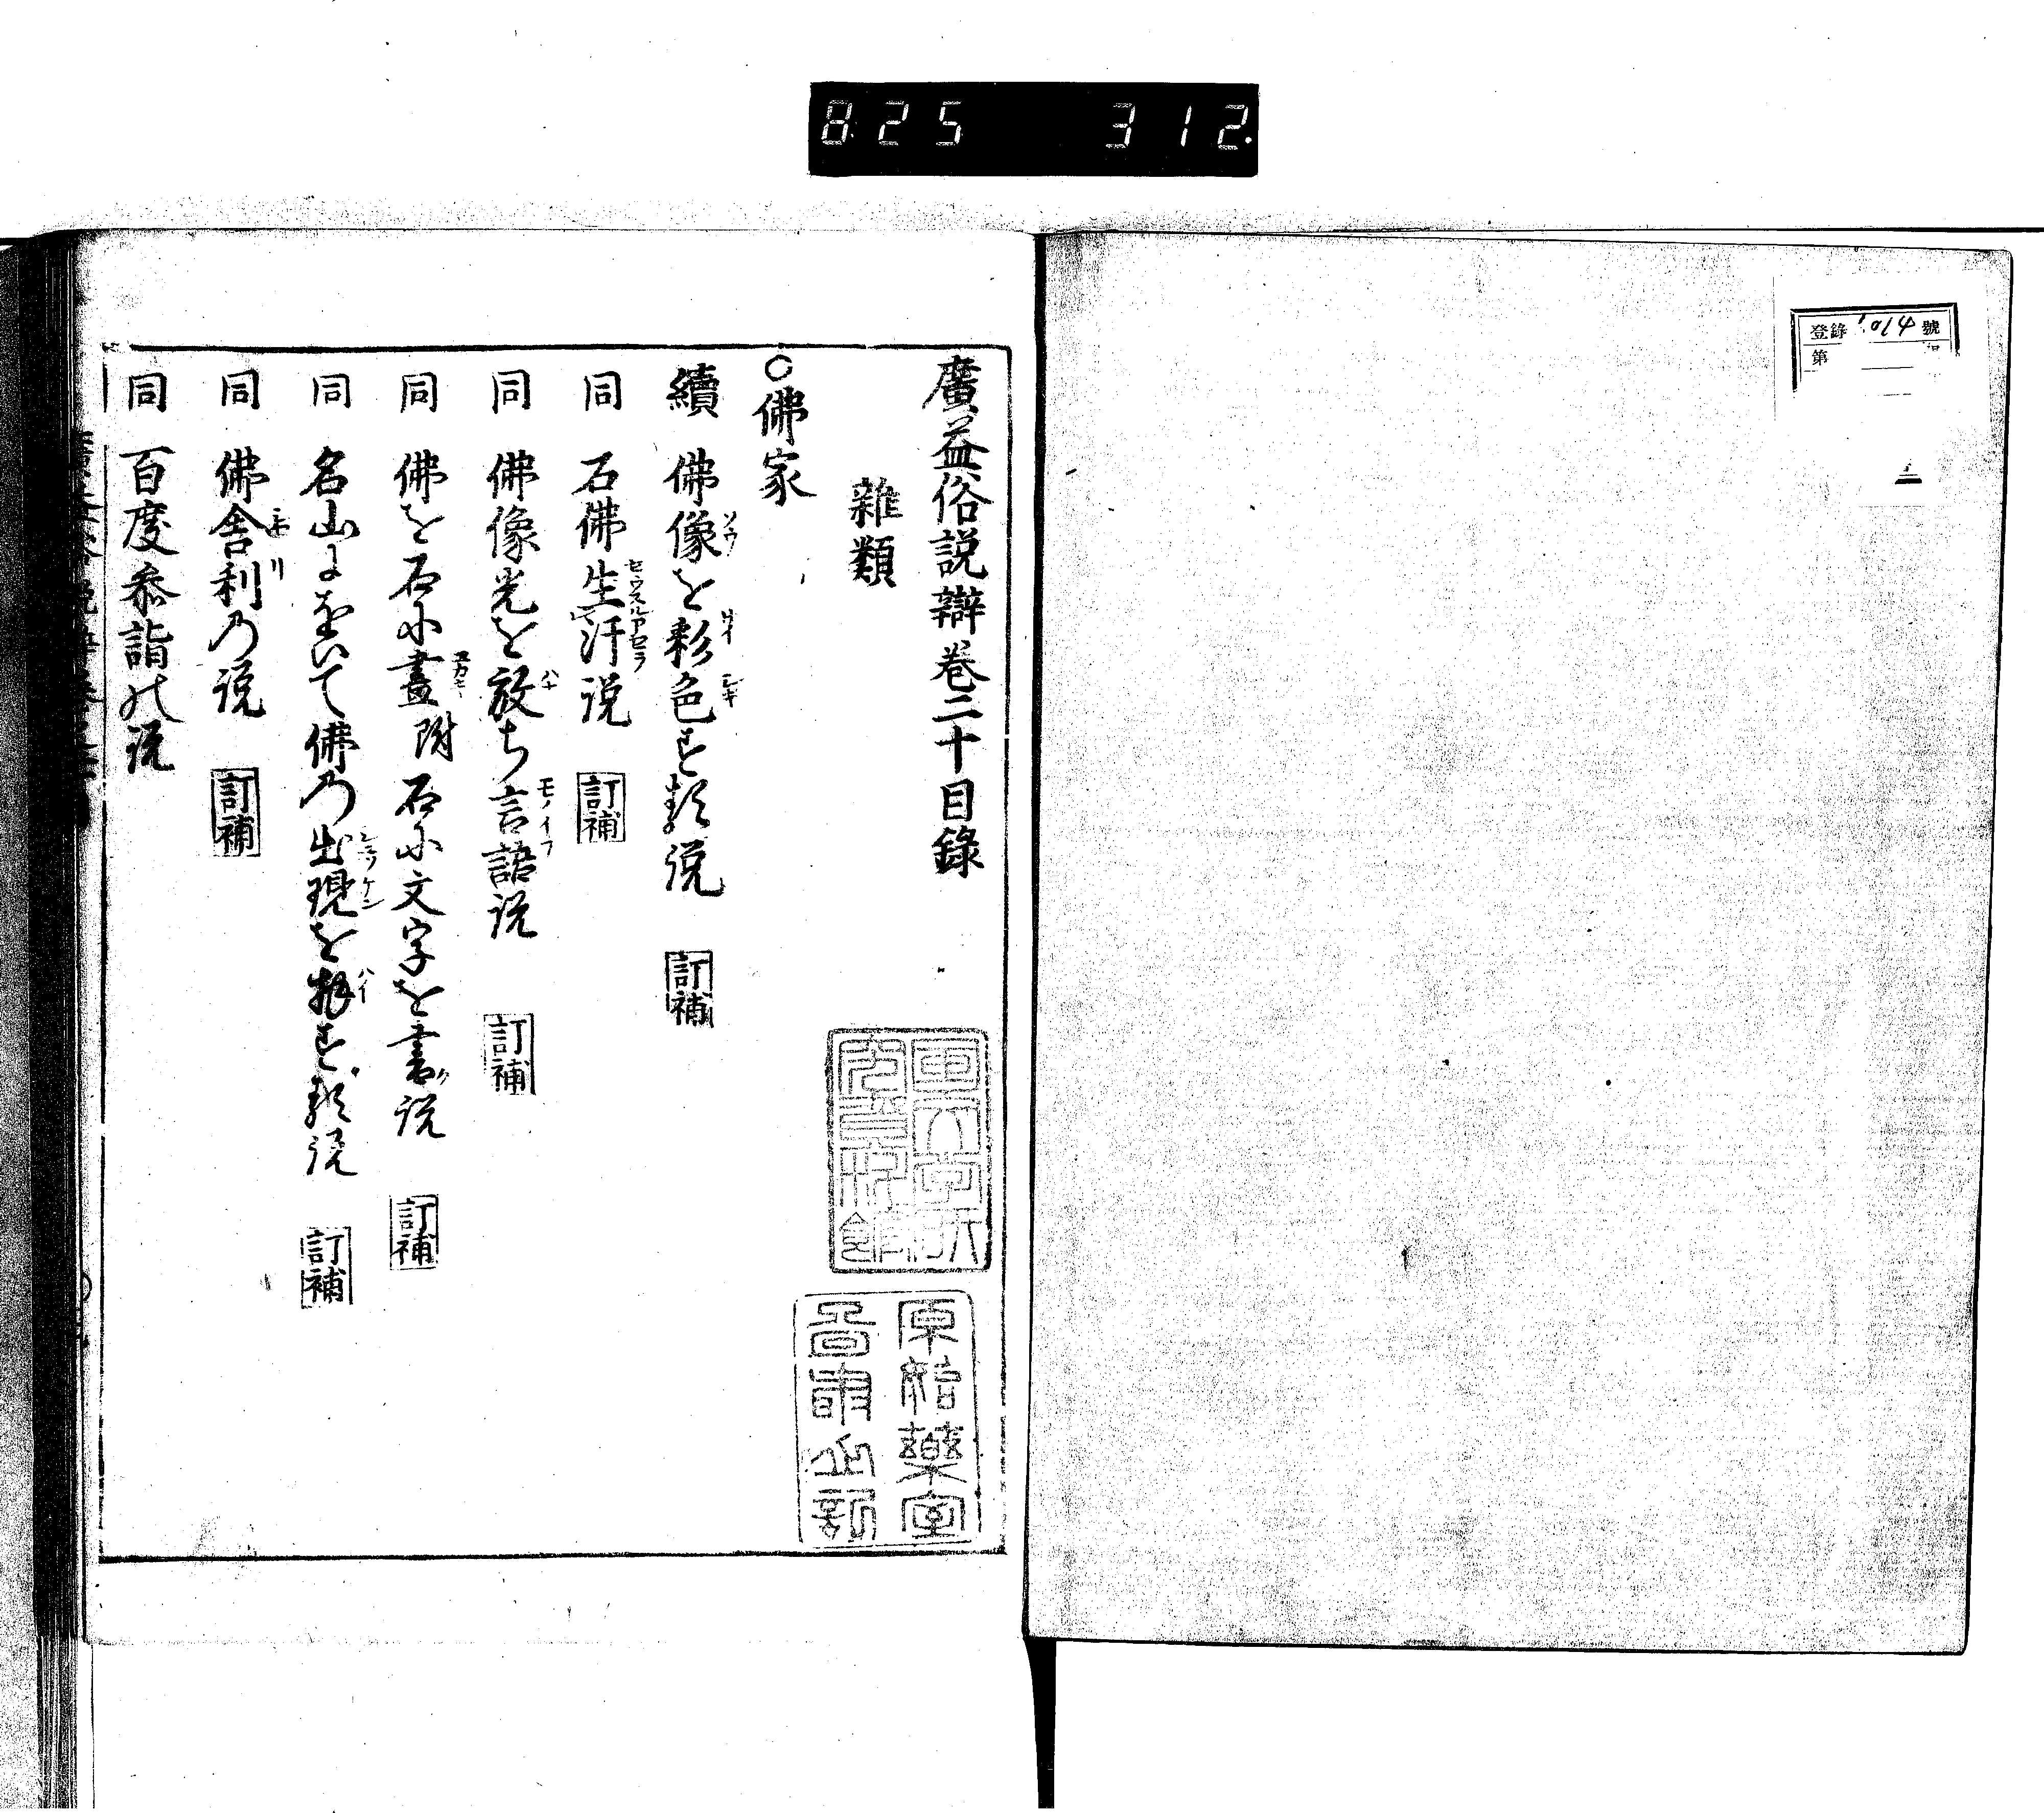 825 312.
登錄 1014 號
第
廣益俗説辯巻二十目錄
雜類
○佛家
續 佛像を彩色する説 訂補
同 石佛生汗説 訂補
同 佛像光を放ち言語説 訂補
同 佛を石に畫附石に文字を書説 訂補
同 名山にをいて佛の出現を拝する説 訂補
同 佛舎利の説 訂補
同 百度参詣の説